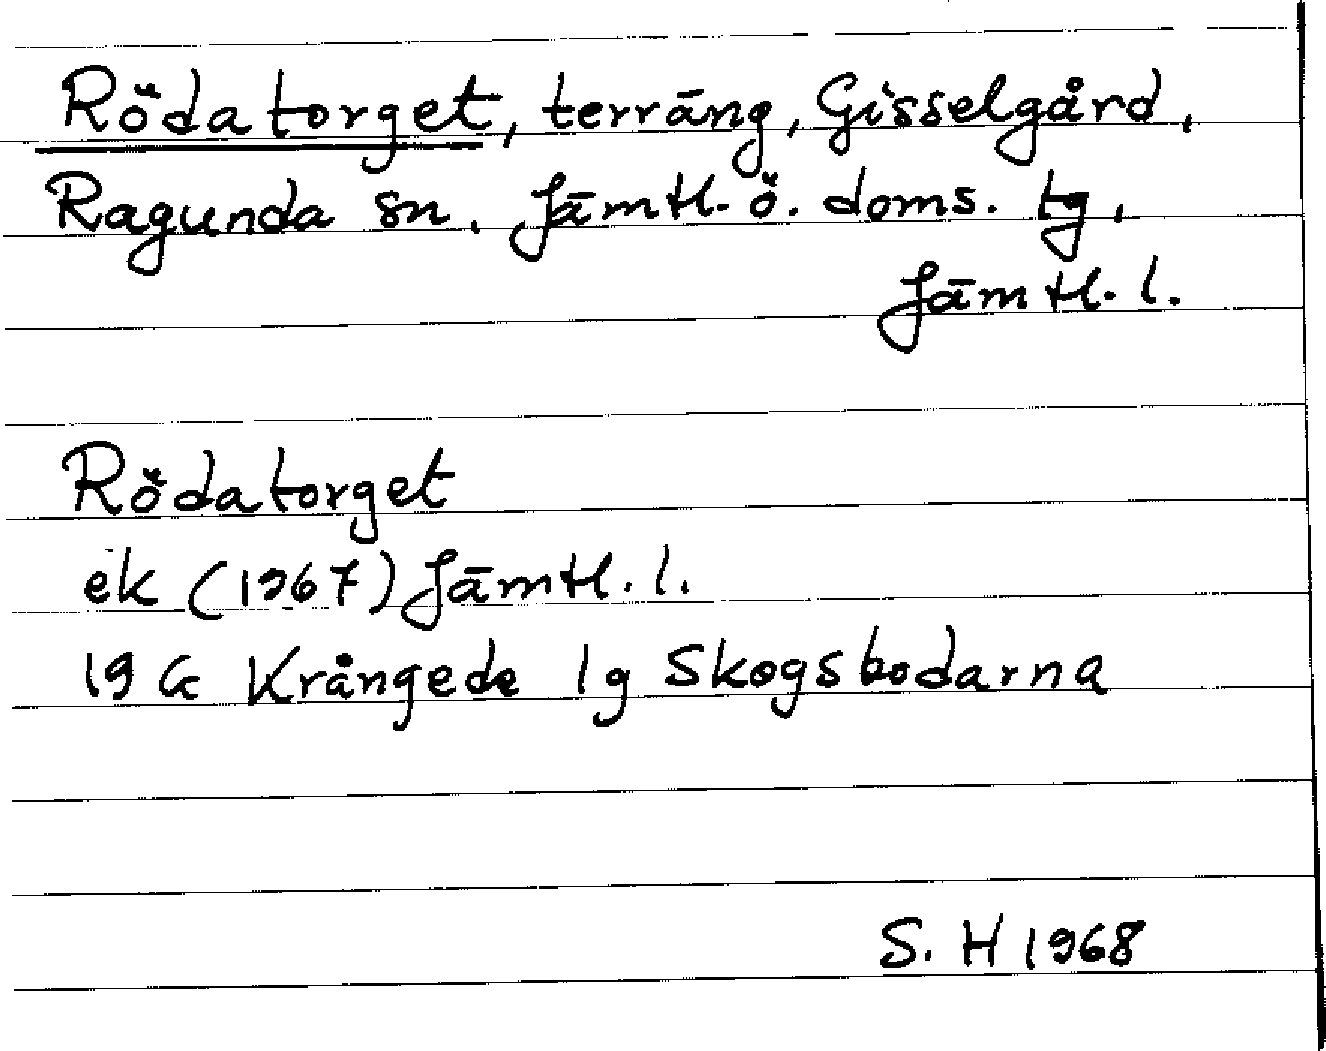 Rödatorget, terräng, Gisselgård,
Ragunda sn. Jämtl. ö. doms. tg,
Jämtl. l.
Rödatorget
ek (1967) Jämtl. l.
19 G Krångede 1g Skogsbodarna
S. H 1968